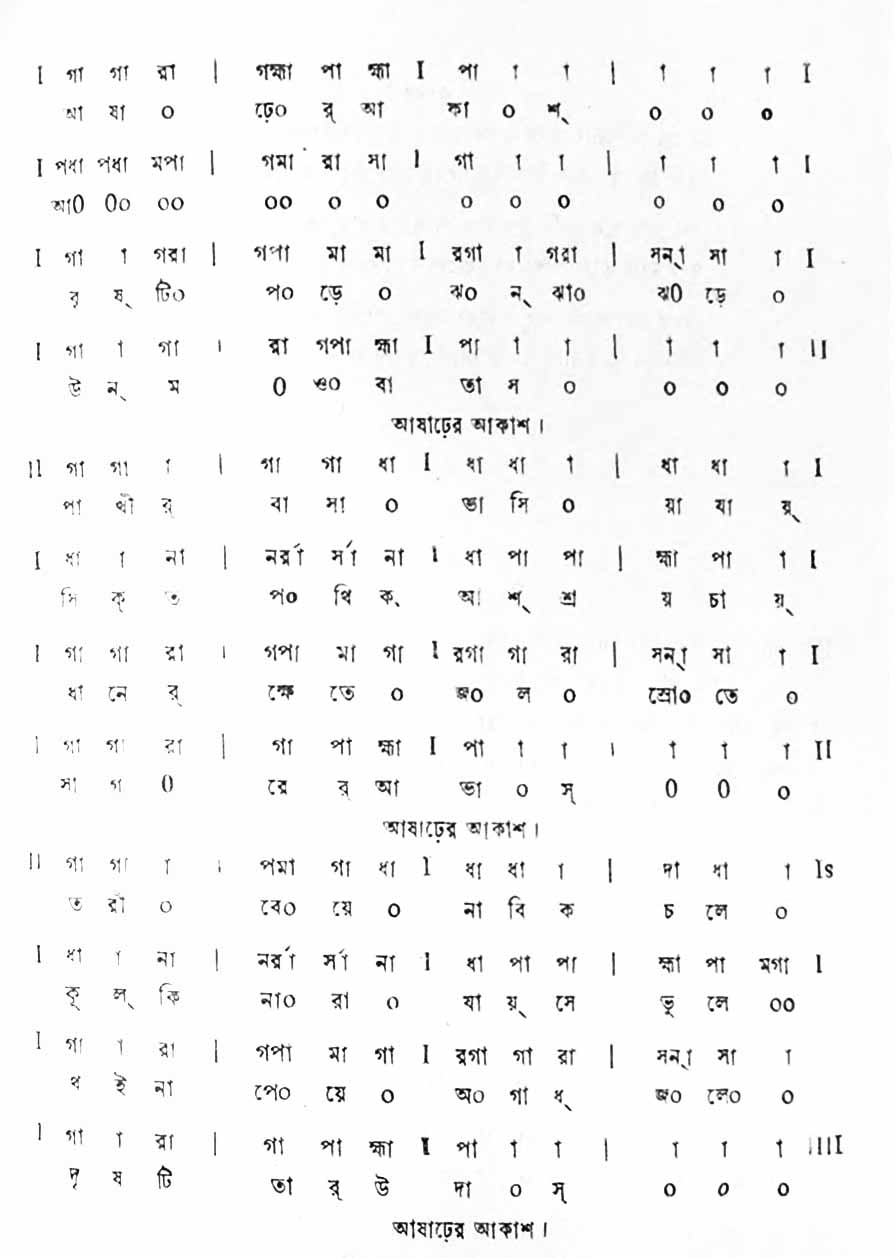 I গা গা রা | গহ্মা পা হ্মা I পা া া | া া া I
আ ষা ০ ঢ়ে০ র্ আ কা ০ শ্ ০ ০ ০
I পধা পধা মপা | গমা রা সা I গা া া | া া া I
আ0 0০ ০০ ০০ ০ ০ ০ ০ ০ ০ ০ ০
I গা া গরা | গপা মা মা I রগা া গরা | সন্া সা া I
বৃ ষ্ টি০ প০ ড়ে ০ ঝ০ ন্ ঝা০ ঝ0 ড়ে ০
I গা া গা । রা গপা হ্মা I পা া া | া া া II
উ ন্ ম 0 ও০ বা তা স ০ ০ ০ ০
আষাঢ়ের আকাশ।
II গা গা া | গা গা ধা I ধা ধা া | ধা ধা া I
পা খী র্ বা সা ০ ভা সি ০ য়া যা য়্
I ধা া না | নর্রা র্সা না I ধা পা পা | হ্মা পা া I
সি ক্ ত প০ থি ক্ আ শ্ শ্র য় চা য়্
I গা গা রা । গপা মা গা I রগা গা রা | সন্া সা া I
ধা নে র্ ক্ষে তে ০ জ০ ল ০ স্রো০ তে ০
I গা গা রা | গা পা হ্মা I পা া া । া া া II
সা গ 0 রে র্ আ ভা ০ স্ 0 0 ০
আষাঢ়ের আকাশ।
II গা গা া । পমা গা ধা I ধা ধা া | দা ধা া Is
ত রী ০ বে০ য়ে ০ না বি ক চ লে ০
I ধা া না | নর্রা র্সা না I ধা পা পা | হ্মা পা মগা I
কূ ল্ কি না০ রা ০ যা য়্ সে ভু লে ০০
I গা া রা | গপা মা গা I রগা গা রা | সন্া সা া
থ ই না পে০ য়ে ০ অ০ গা ধ্ জ০ লে০ ০
I গা া রা | গা পা হ্মা I পা া া | া া া IIII
দৃ ষ টি তা র্ উ দা ০ স্ ০ ০ ০
আষাঢ়ের আকাশ।